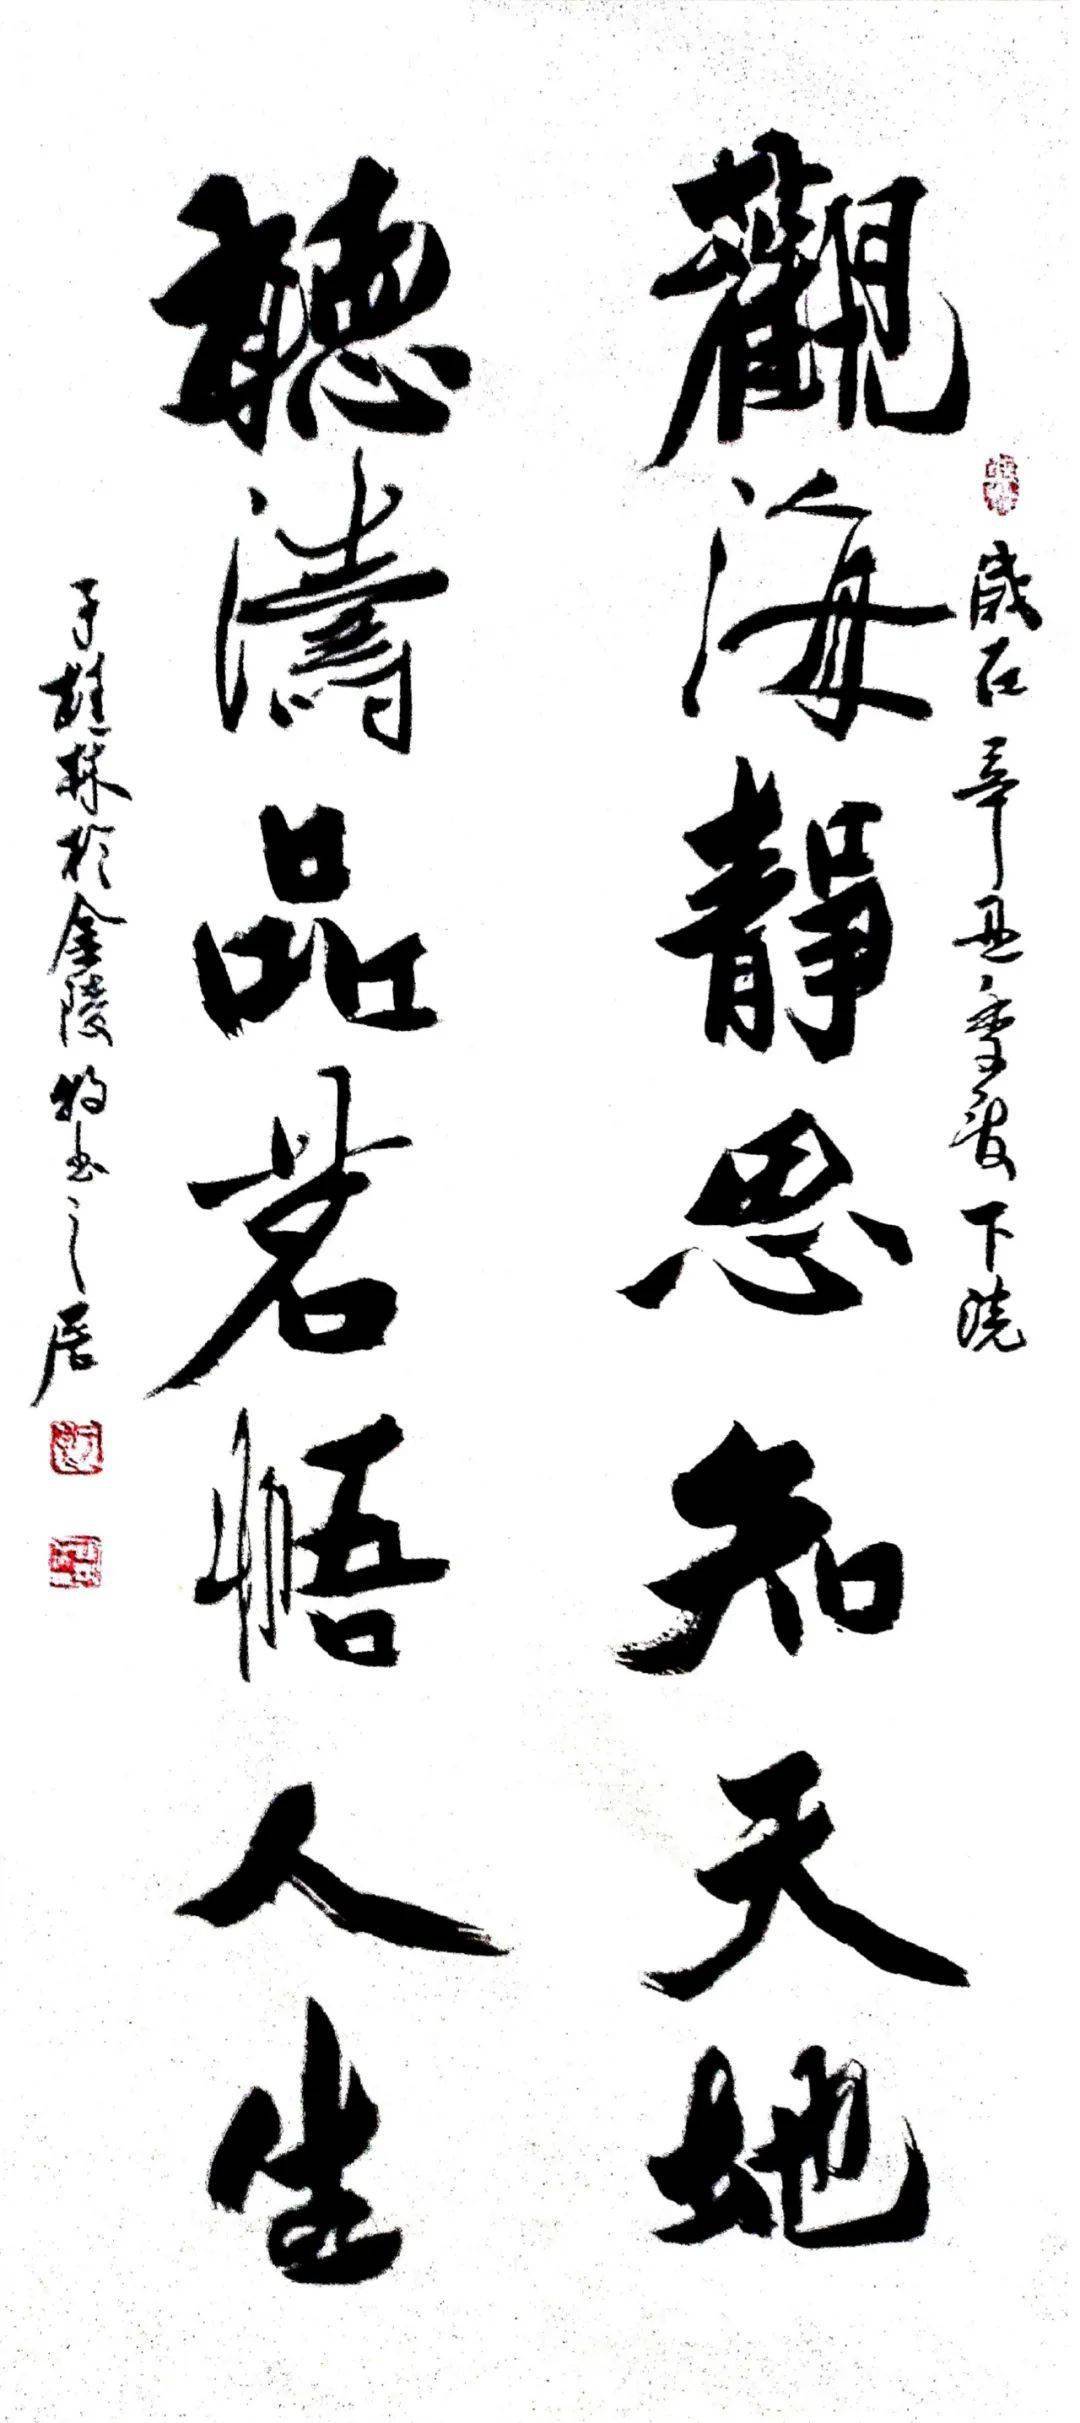 歲在辛丑季夏下浣
觀海靜思知天地
聽濤品茗悟人生
子雄林於金陵牧書之居